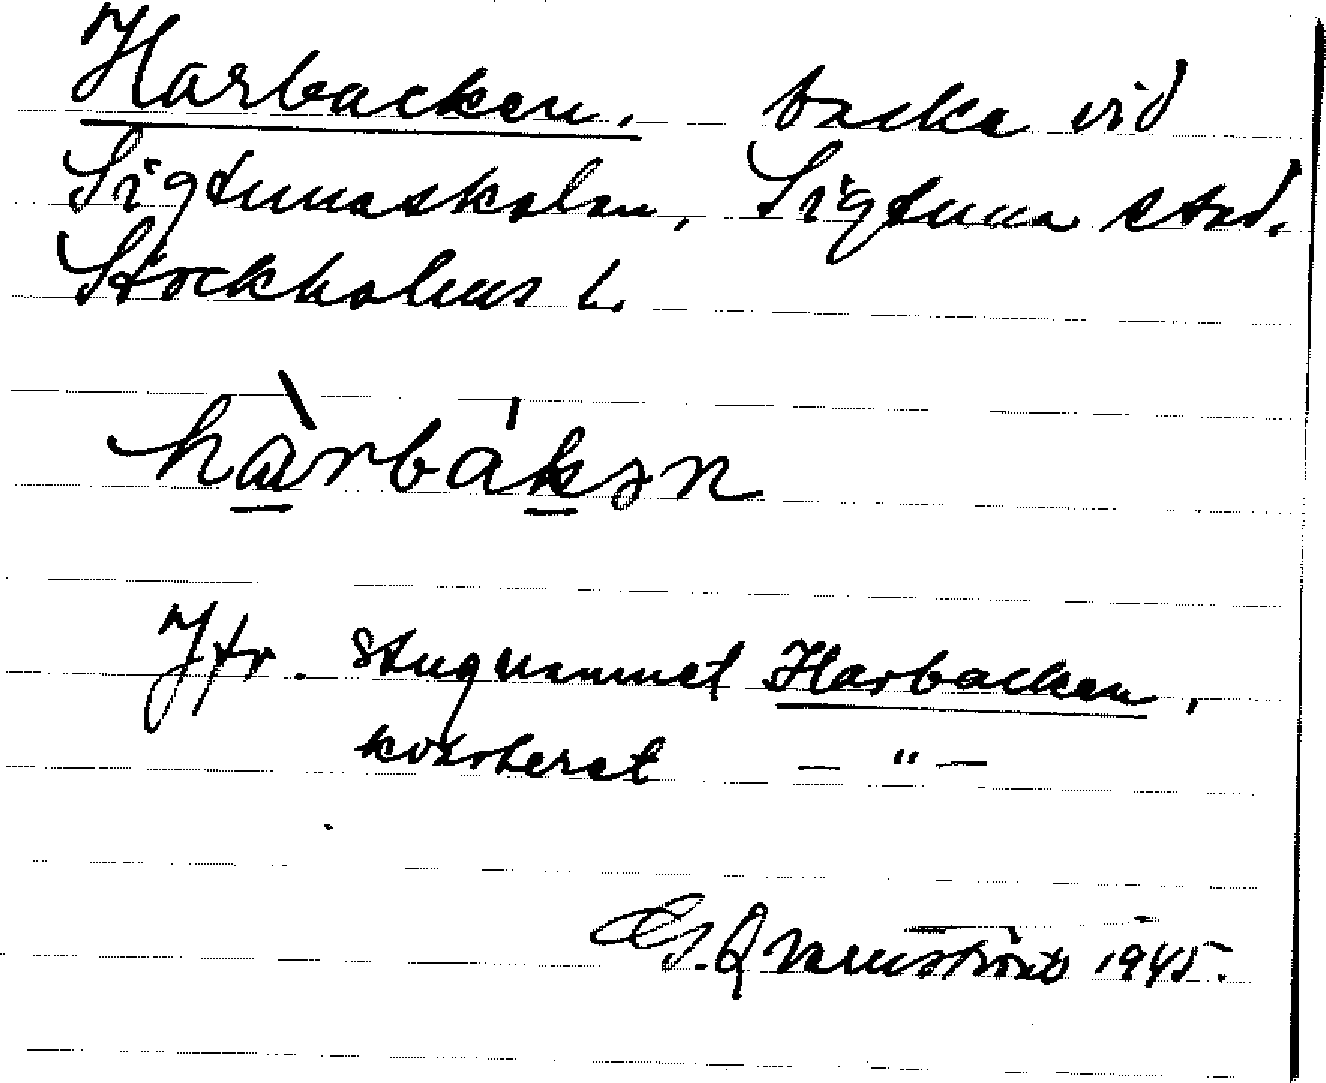 Harbacken, backe vid
Sigtunaskolan, Sigtuna stad.
Stockholms l.
hàrbákən
Jfr. stugnamnet Harbacken,
kvarteret — " —
G. Qvarnström 1945.